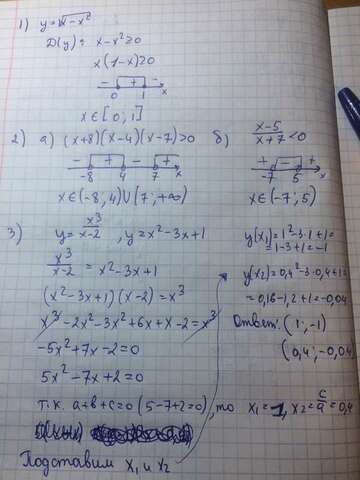 1) y = √x - x²
D(y): x - x² ≥ 0
x(1-x) ≥ 0
- + -
0 1 x
x ∈ [0; 1]
2) а) (x+8)(x-4)(x-7) > 0 б) x-5/x+7 < 0
- + - + + - +
-8 4 7 x -7 5 x
x ∈ (-8; 4) U (7; +∞) x ∈ (-7; 5)
3) y = x³/x-2 , y = x² - 3x + 1
x³/x-2 = x² - 3x + 1
(x² - 3x + 1)(x-2) = x³
x³ - 2x² - 3x² + 6x + x - 2 = x³
-5x² + 7x - 2 = 0
5x² - 7x + 2 = 0
т.к. a+b+c=0 (5-7+2=0), то x₁ = 1, x₂ = c/a = 0,4
Подставим x₁ и x₂
y(x₁) = 1² - 3·1 + 1 =
= 1 - 3 + 1 = -1
y(x₂) = 0,4² - 3·0,4 + 1 =
= 0,16 - 1,2 + 1 = -0,04
Ответ: (1; -1)
(0,4; -0,04)